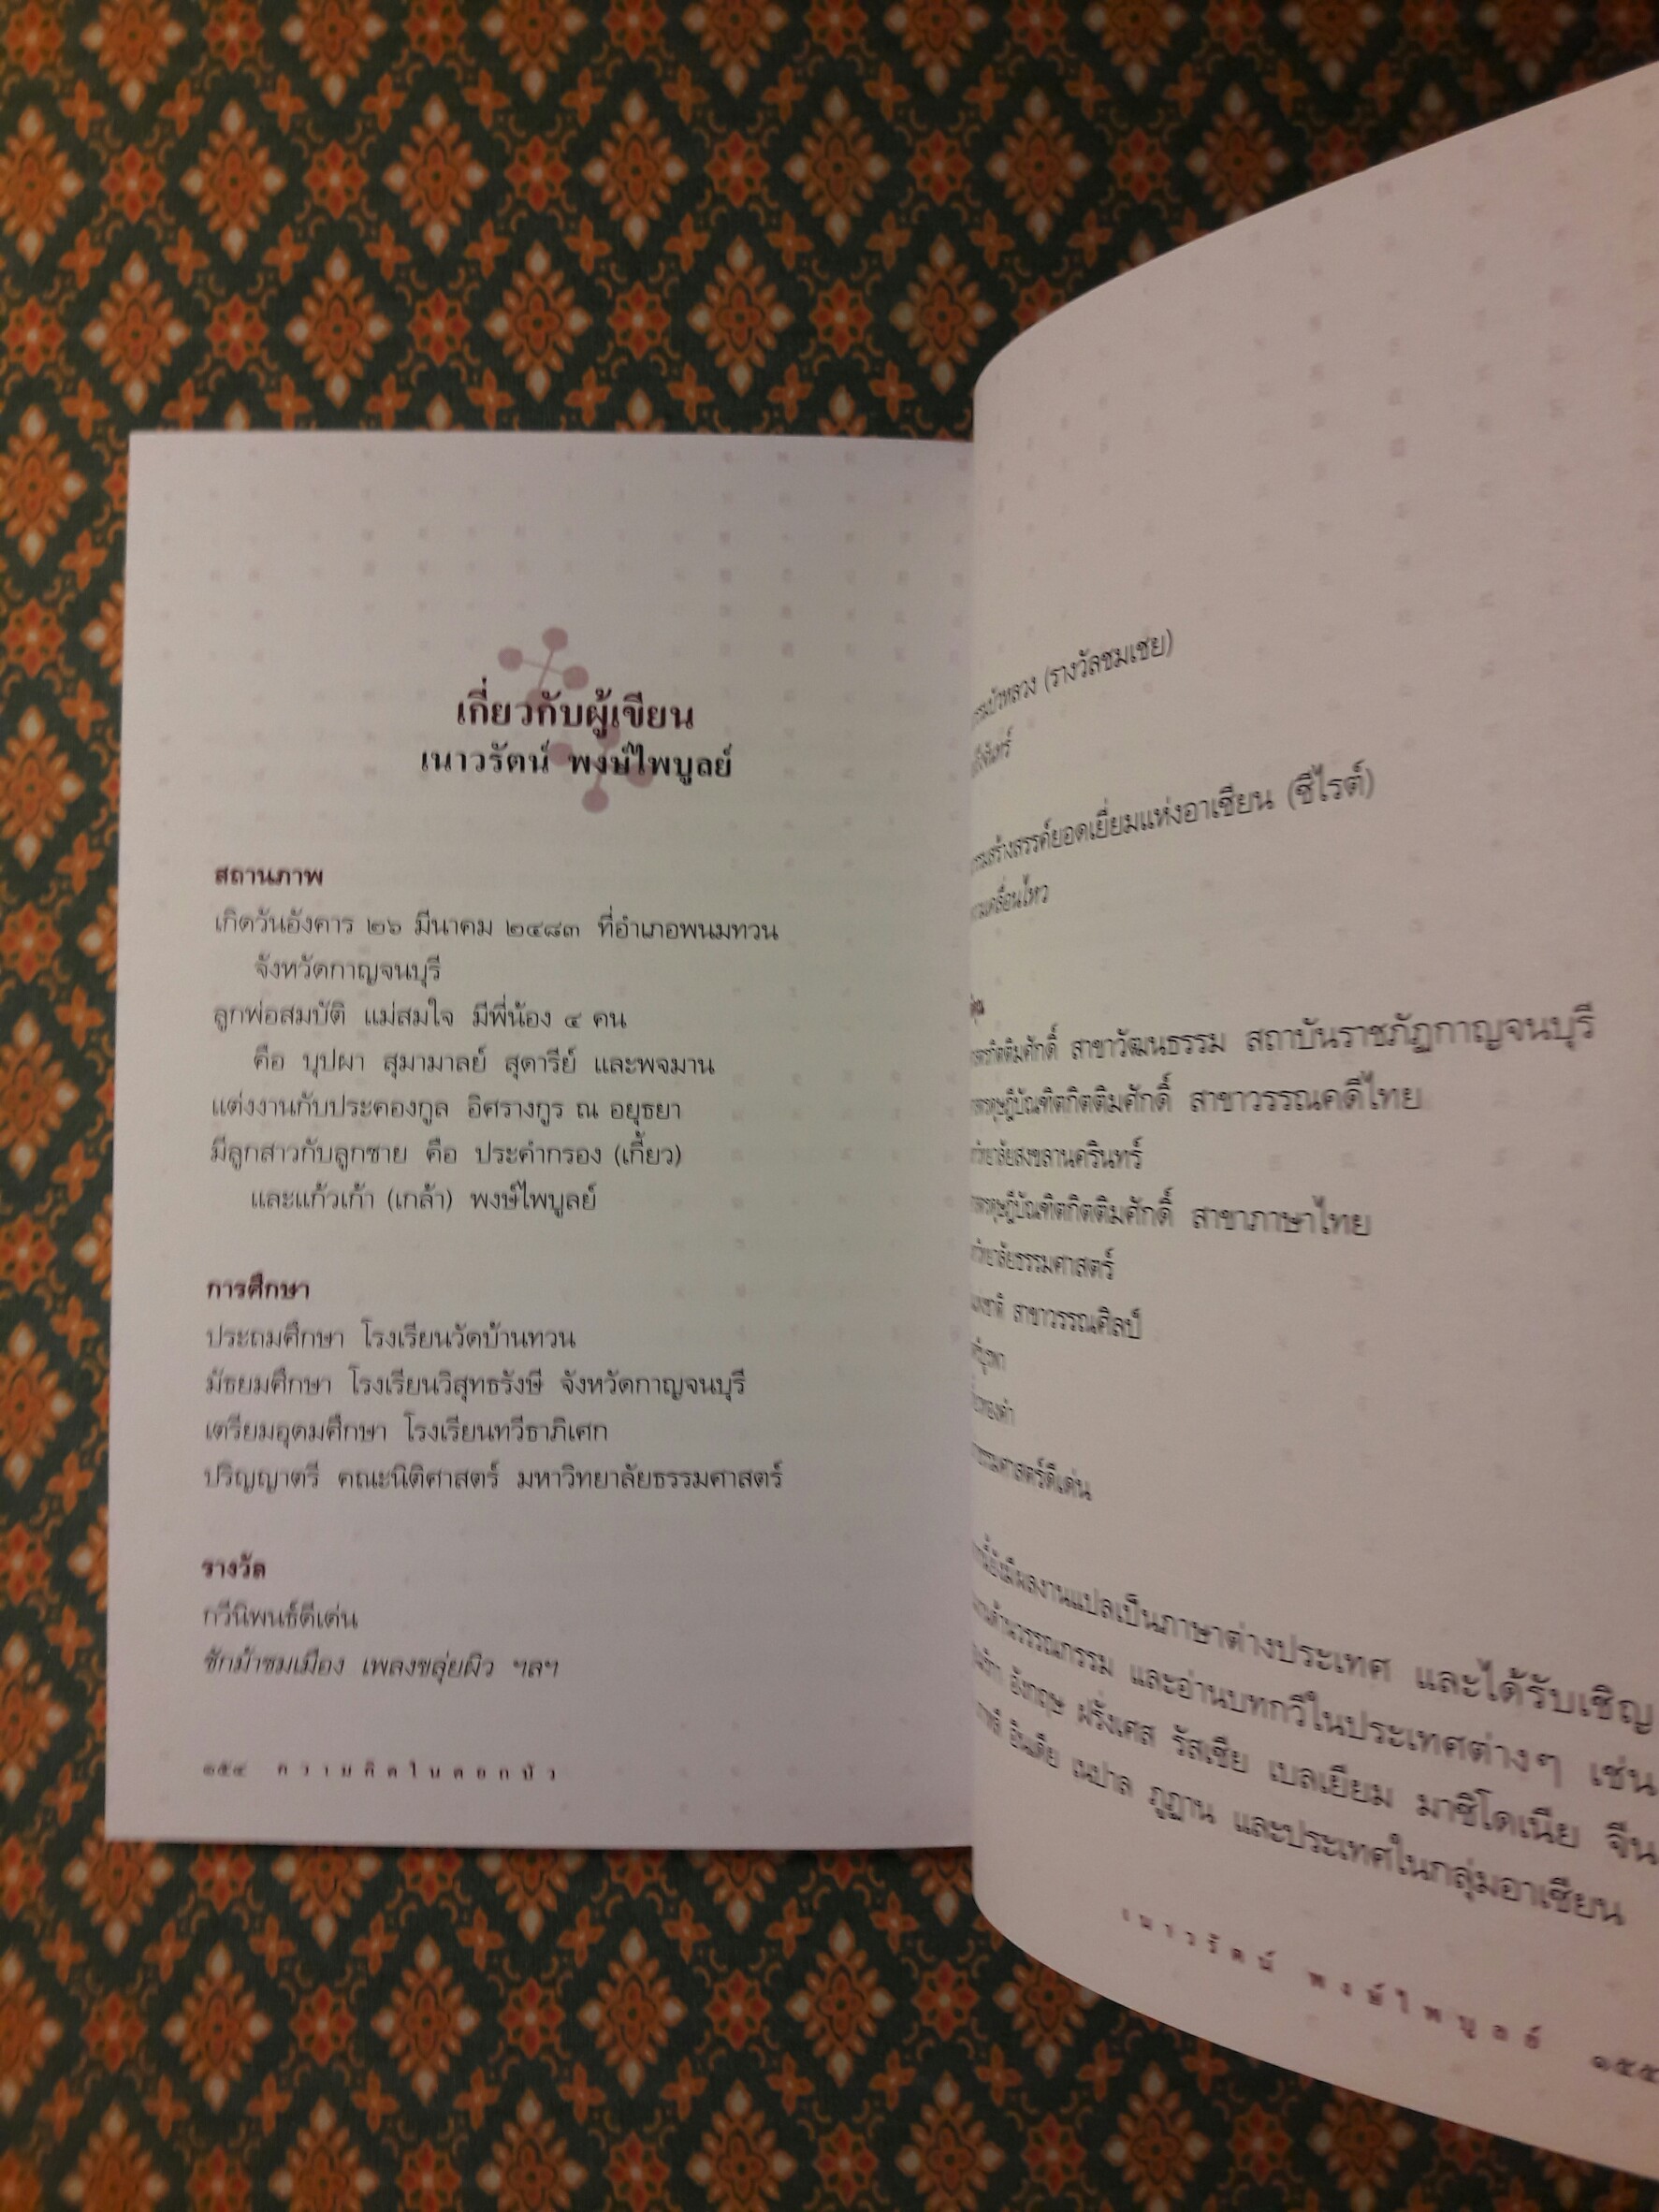 เกี่ยวกับผู้เขียน
เนาวรัตน์ พงษ์ไพบูลย์
สถานภาพ
เกิดวันอังคาร ๒๖ มีนาคม ๒๔๘๓ ที่อำเภอพนมทวน
จังหวัดกาญจนบุรี
ลูกพ่อสมบัติ แม่สมใจ มีพี่น้อง ๔ คน
คือ บุปผา สุมามาลย์ สุดารีย์ และพจมาน
แต่งงานกับประคองกูล อิศรางกูร ณ อยุธยา
มีลูกสาวกับลูกชาย คือ ประคำกรอง (เกี้ยว)
และแก้วเก้า (เกล้า) พงษ์ไพบูลย์
การศึกษา
ประถมศึกษา โรงเรียนวัดบ้านทวน
มัธยมศึกษา โรงเรียนวิสุทธรังษี จังหวัดกาญจนบุรี
เตรียมอุดมศึกษา โรงเรียนทวีธาภิเศก
ปริญญาตรี คณะนิติศาสตร์ มหาวิทยาลัยธรรมศาสตร์
รางวัล
กวีนิพนธ์ดีเด่น
ชักม้าชมเมือง เพลงขลุ่ยผิว ฯลฯ
๑๕๔ ความคิดในดอกบัว
(รางวัลชมเชย)
สร้างสรรค์ยอดเยี่ยมแห่งอาเซียน (ซีไรต์)
เคลื่อนไหว
กิตติมศักดิ์ สาขาวัฒนธรรม สถาบันราชภัฏกาญจนบุรี
ดุษฎีบัณฑิตกิตติมศักดิ์ สาขาวรรณคดีไทย
วิทยาลัยสงขลานครินทร์
ดุษฎีบัณฑิตกิตติมศักดิ์ สาขาภาษาไทย
วิทยาลัยธรรมศาสตร์
สาขาวรรณศิลป์
ธรรมศาสตร์ดีเด่น
ยังมีผลงานแปลเป็นภาษาต่างประเทศ และได้รับเชิญ
ด้านวรรณกรรม และอ่านบทกวีในประเทศต่างๆ เช่น
อังกฤษ ฝรั่งเศส รัสเซีย เบลเยียม มาซิโดเนีย จีน
อินเดีย เนปาล ภูฏาน และประเทศในกลุ่มอาเซียน
เนาวรัตน์ พงษ์ไพบูลย์ ๑๕๕